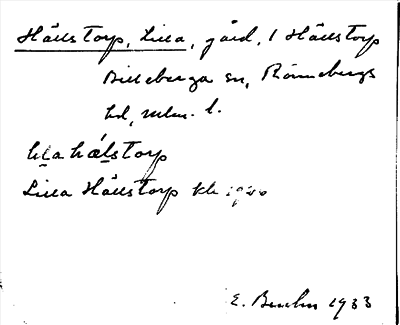 Hällstorp, Lilla, gård, i Hällstorp
Billeberga sn, Rönnebergs
hd, mlm. l.
lɩla hǽlstorp
Lilla Hällstorp kb 1920
E. Bruhn 1933